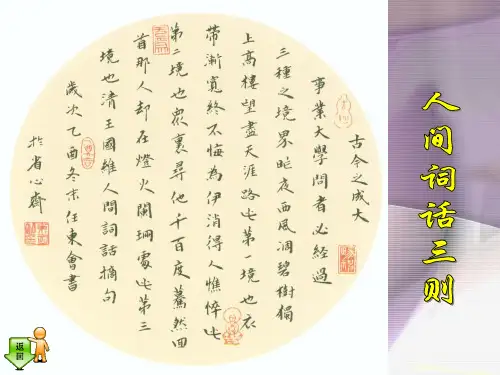 人间词话三则
古今之成大
事業大學問者必經過
三種之境界昨夜西風凋碧樹獨
上高樓望盡天涯路此第一境也衣
帶漸寬終不悔為伊消得人憔悴此
第二境也眾裏尋他千百度驀然回
首那人却在燈火闌珊處此第三
境也清王國維人間詞話摘句
歲次乙酉冬末任東會書
於省心齋
返回